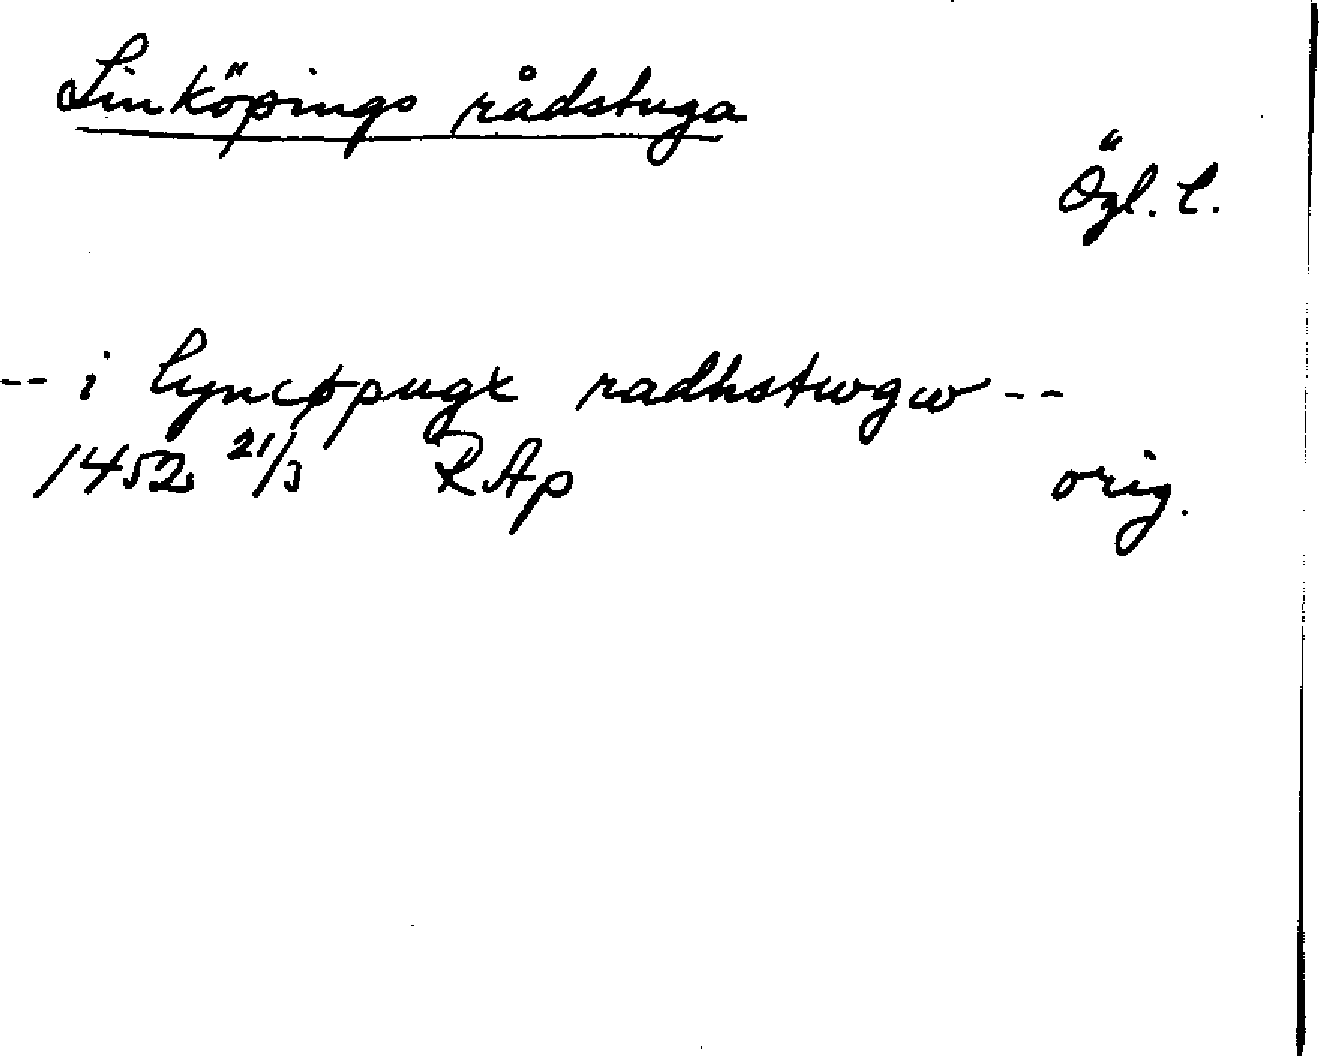 Linköpings rådstuga
Ögl. l.
-- i lyncøpugx radhstwgw --
1452 21/3 RAp orig.